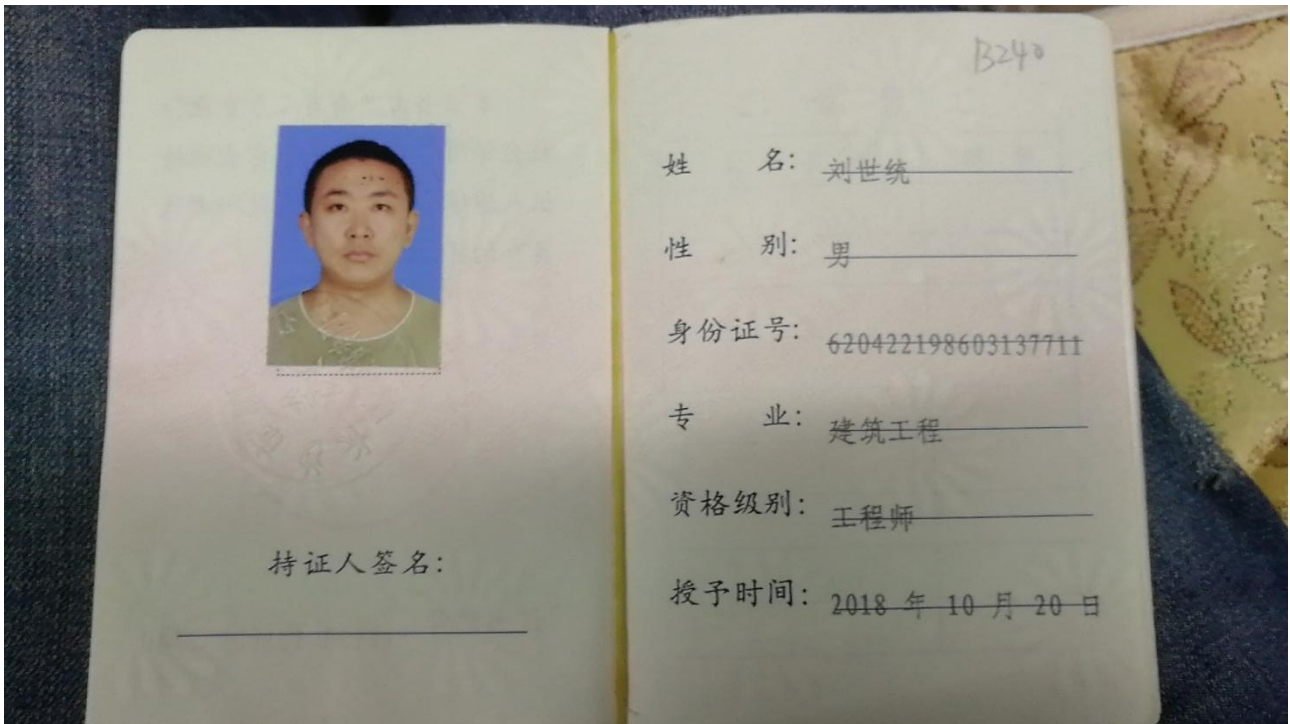 持证人签名：
B240
姓名：刘世统
性别：男
身份证号：620422198603137711
专业：建筑工程
资格级别：工程师
授予时间：2018 年 10 月 20 日